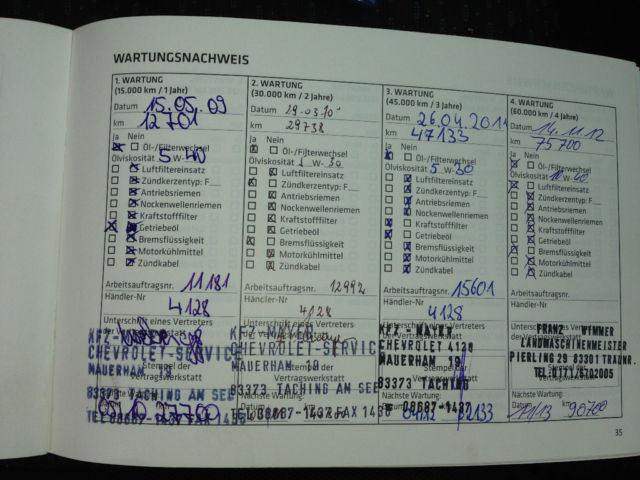 WARTUNGSNACHWEIS
1. WARTUNG
(15.000 km / 1 Jahr)
Datum 15.05.09
km 12701
Ja Nein
Öl-/Filterwechsel
Ölviskosität 5 W- 40
Luftfiltereinsatz
Zündkerzentyp: F
Antriebsriemen
Nockenwellenriemen
Kraftstofffilter
Getriebeöl
Bremsflüssigkeit
Motorkühlmittel
Zündkabel
Arbeitsauftragsnr. 11181
Händler-Nr
4128
Unterschrift eines Vertreters
der
KFZ-
CHEVROLET-SERVIC
MAUERHAM 19
Stempel der
Vertragswerkstatt
83373 TACHING AM SEE
Nächste Wartung:
05.10 27700
TEL 08687-1437 FAX 1438
2. WARTUNG
(30.000 km / 2 Jahre)
Datum 29.03.10
km 29738
Ja Nein
Öl-/Filterwechsel
Ölviskosität W- 30
Luftfiltereinsatz
Zündkerzentyp: F
Antriebsriemen
Nockenwellenriemen
Kraftstofffilter
Getriebeöl
Bremsflüssigkeit
Motorkühlmittel
Zündkabel
Arbeitsauftragsnr. 12992
Händler-Nr
4128
Unterschrift eines Vertreters
der
KFZ - MAYER
CHEVROLET-SERVIC
MAUERHAM 19
Stempel der
Vertragswerkstatt
83373 TACHING AM SEE
Nächste Wartung:
Datum km
TEL 08687-1437 FAX 1438
3. WARTUNG
(45.000 km / 3 Jahre)
Datum 26.04.2011
km 47133
Ja Nein
Öl-/Filterwechsel
Ölviskosität 5 W- 30
Luftfiltereinsatz
Zündkerzentyp: F
Antriebsriemen
Nockenwellenriemen
Kraftstofffilter
Getriebeöl
Bremsflüssigkeit
Motorkühlmittel
Zündkabel
Arbeitsauftragsnr. 15601
Händler-Nr
4128
Unterschrift eines Vertreters
KFZ - MAYER
CHEVROLET 4128
MAUERHAM 19
Stempel der
Vertragswerkstatt
83373 TACHING
Nächste Wartung:
08687-1437
Datum 04.12 62133
4. WARTUNG
(60.000 km / 4 Jahre)
Datum 14.11.12
km 75700
Ja Nein
Öl-/Filterwechsel
Ölviskosität 10 W- 40
Luftfiltereinsatz
Zündkerzentyp: F
Antriebsriemen
Nockenwellenriemen
Kraftstofffilter
Getriebeöl
Bremsflüssigkeit
Motorkühlmittel
Zündkabel
Arbeitsauftragsnr.
Händler-Nr
Unterschrift eines Vertreters
FRANZ WIMMER
LANDMASCHINENMEISTER
PIERLING 29 83301 TRAUNR.
Stempel der
Vertragswerkstatt
Nächste Wartung:
Datum 11/13 km 90700
35